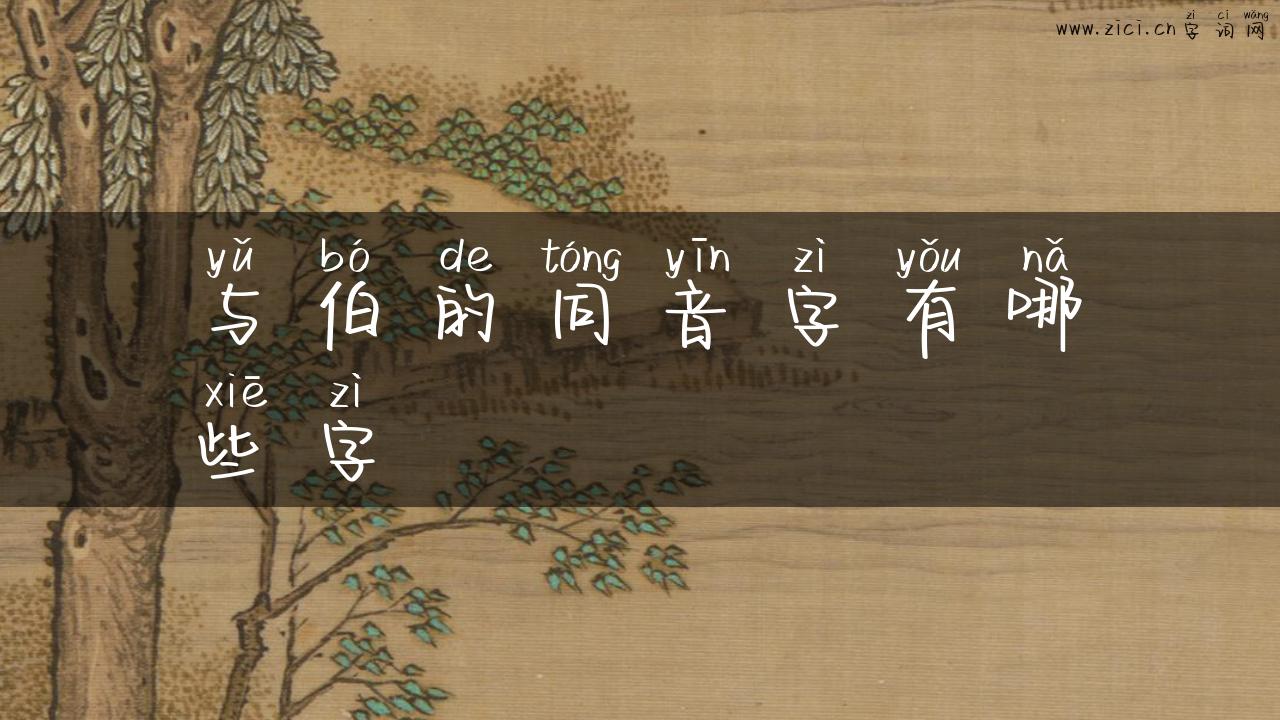 zì cí wǎng
www.zici.cn 字词网
yǔ bó de tóng yīn zì yǒu nǎ
与伯的同音字有哪
xiē zì
些字